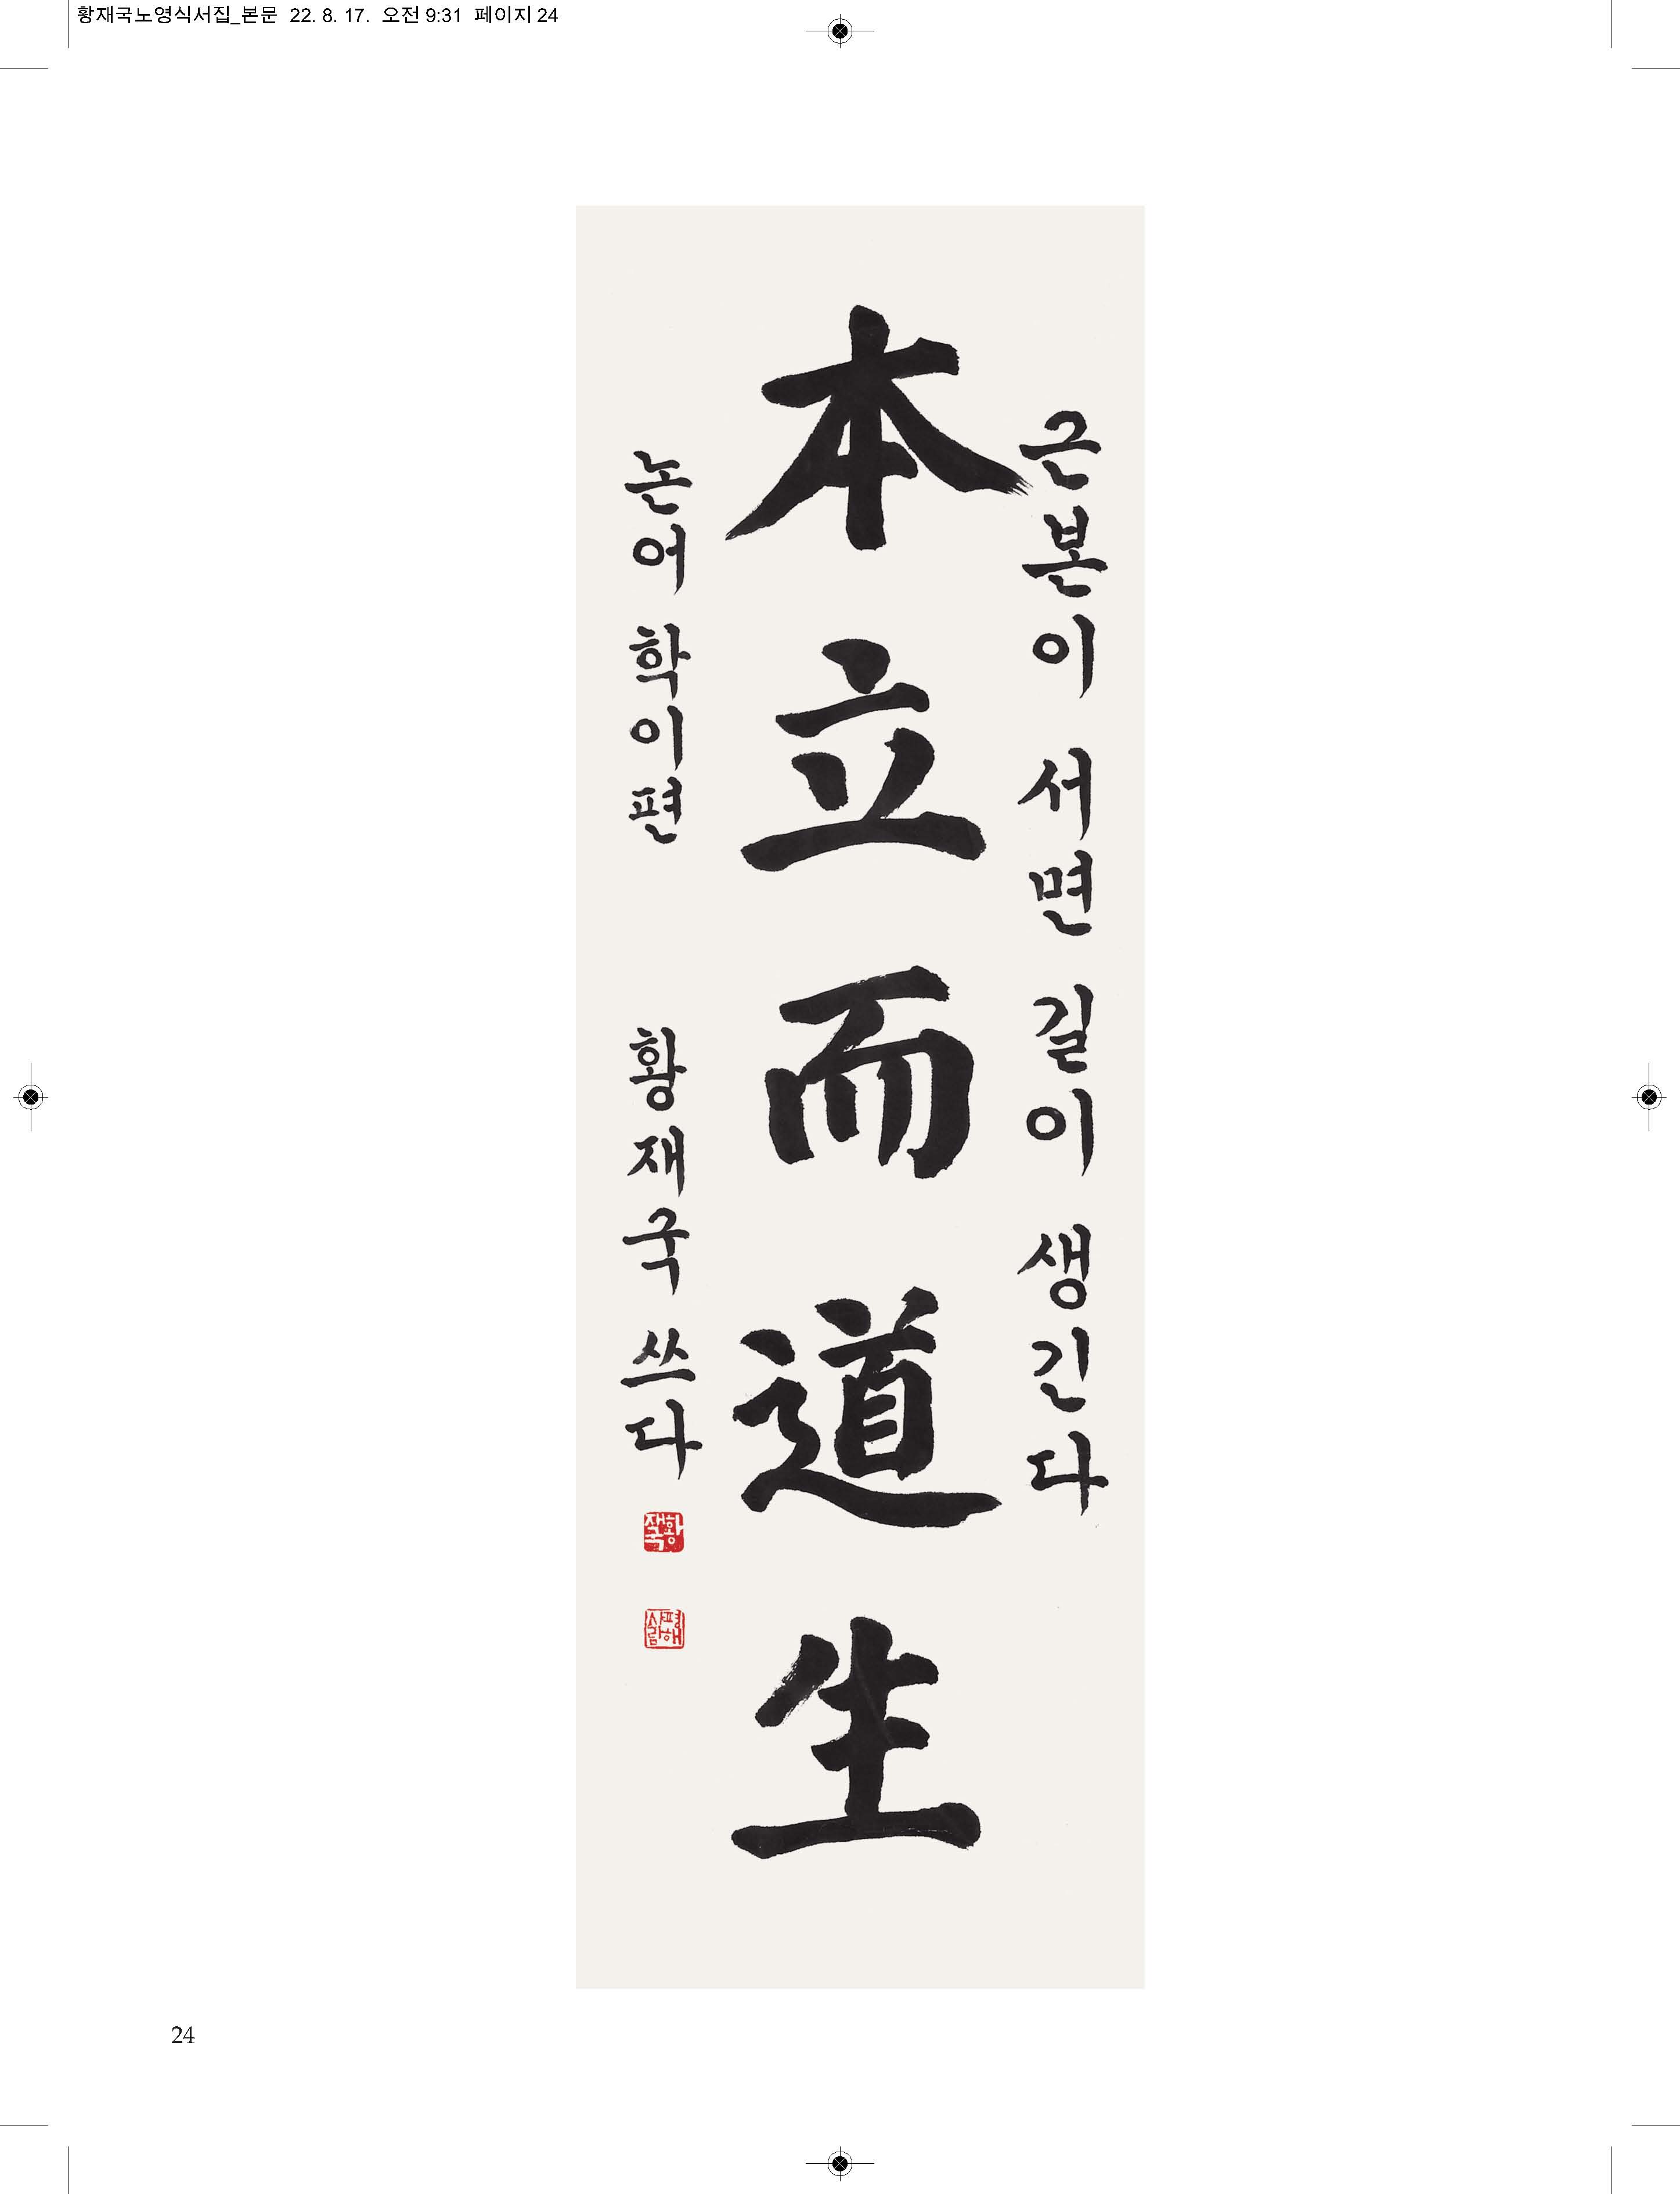 황재국노영식서집_본문 22. 8. 17. 오전 9:31 페이지 24
근본이 서면 길이 생긴다
本立而道生
논어 학이편 황재국 쓰다
황재국
평해사람
24